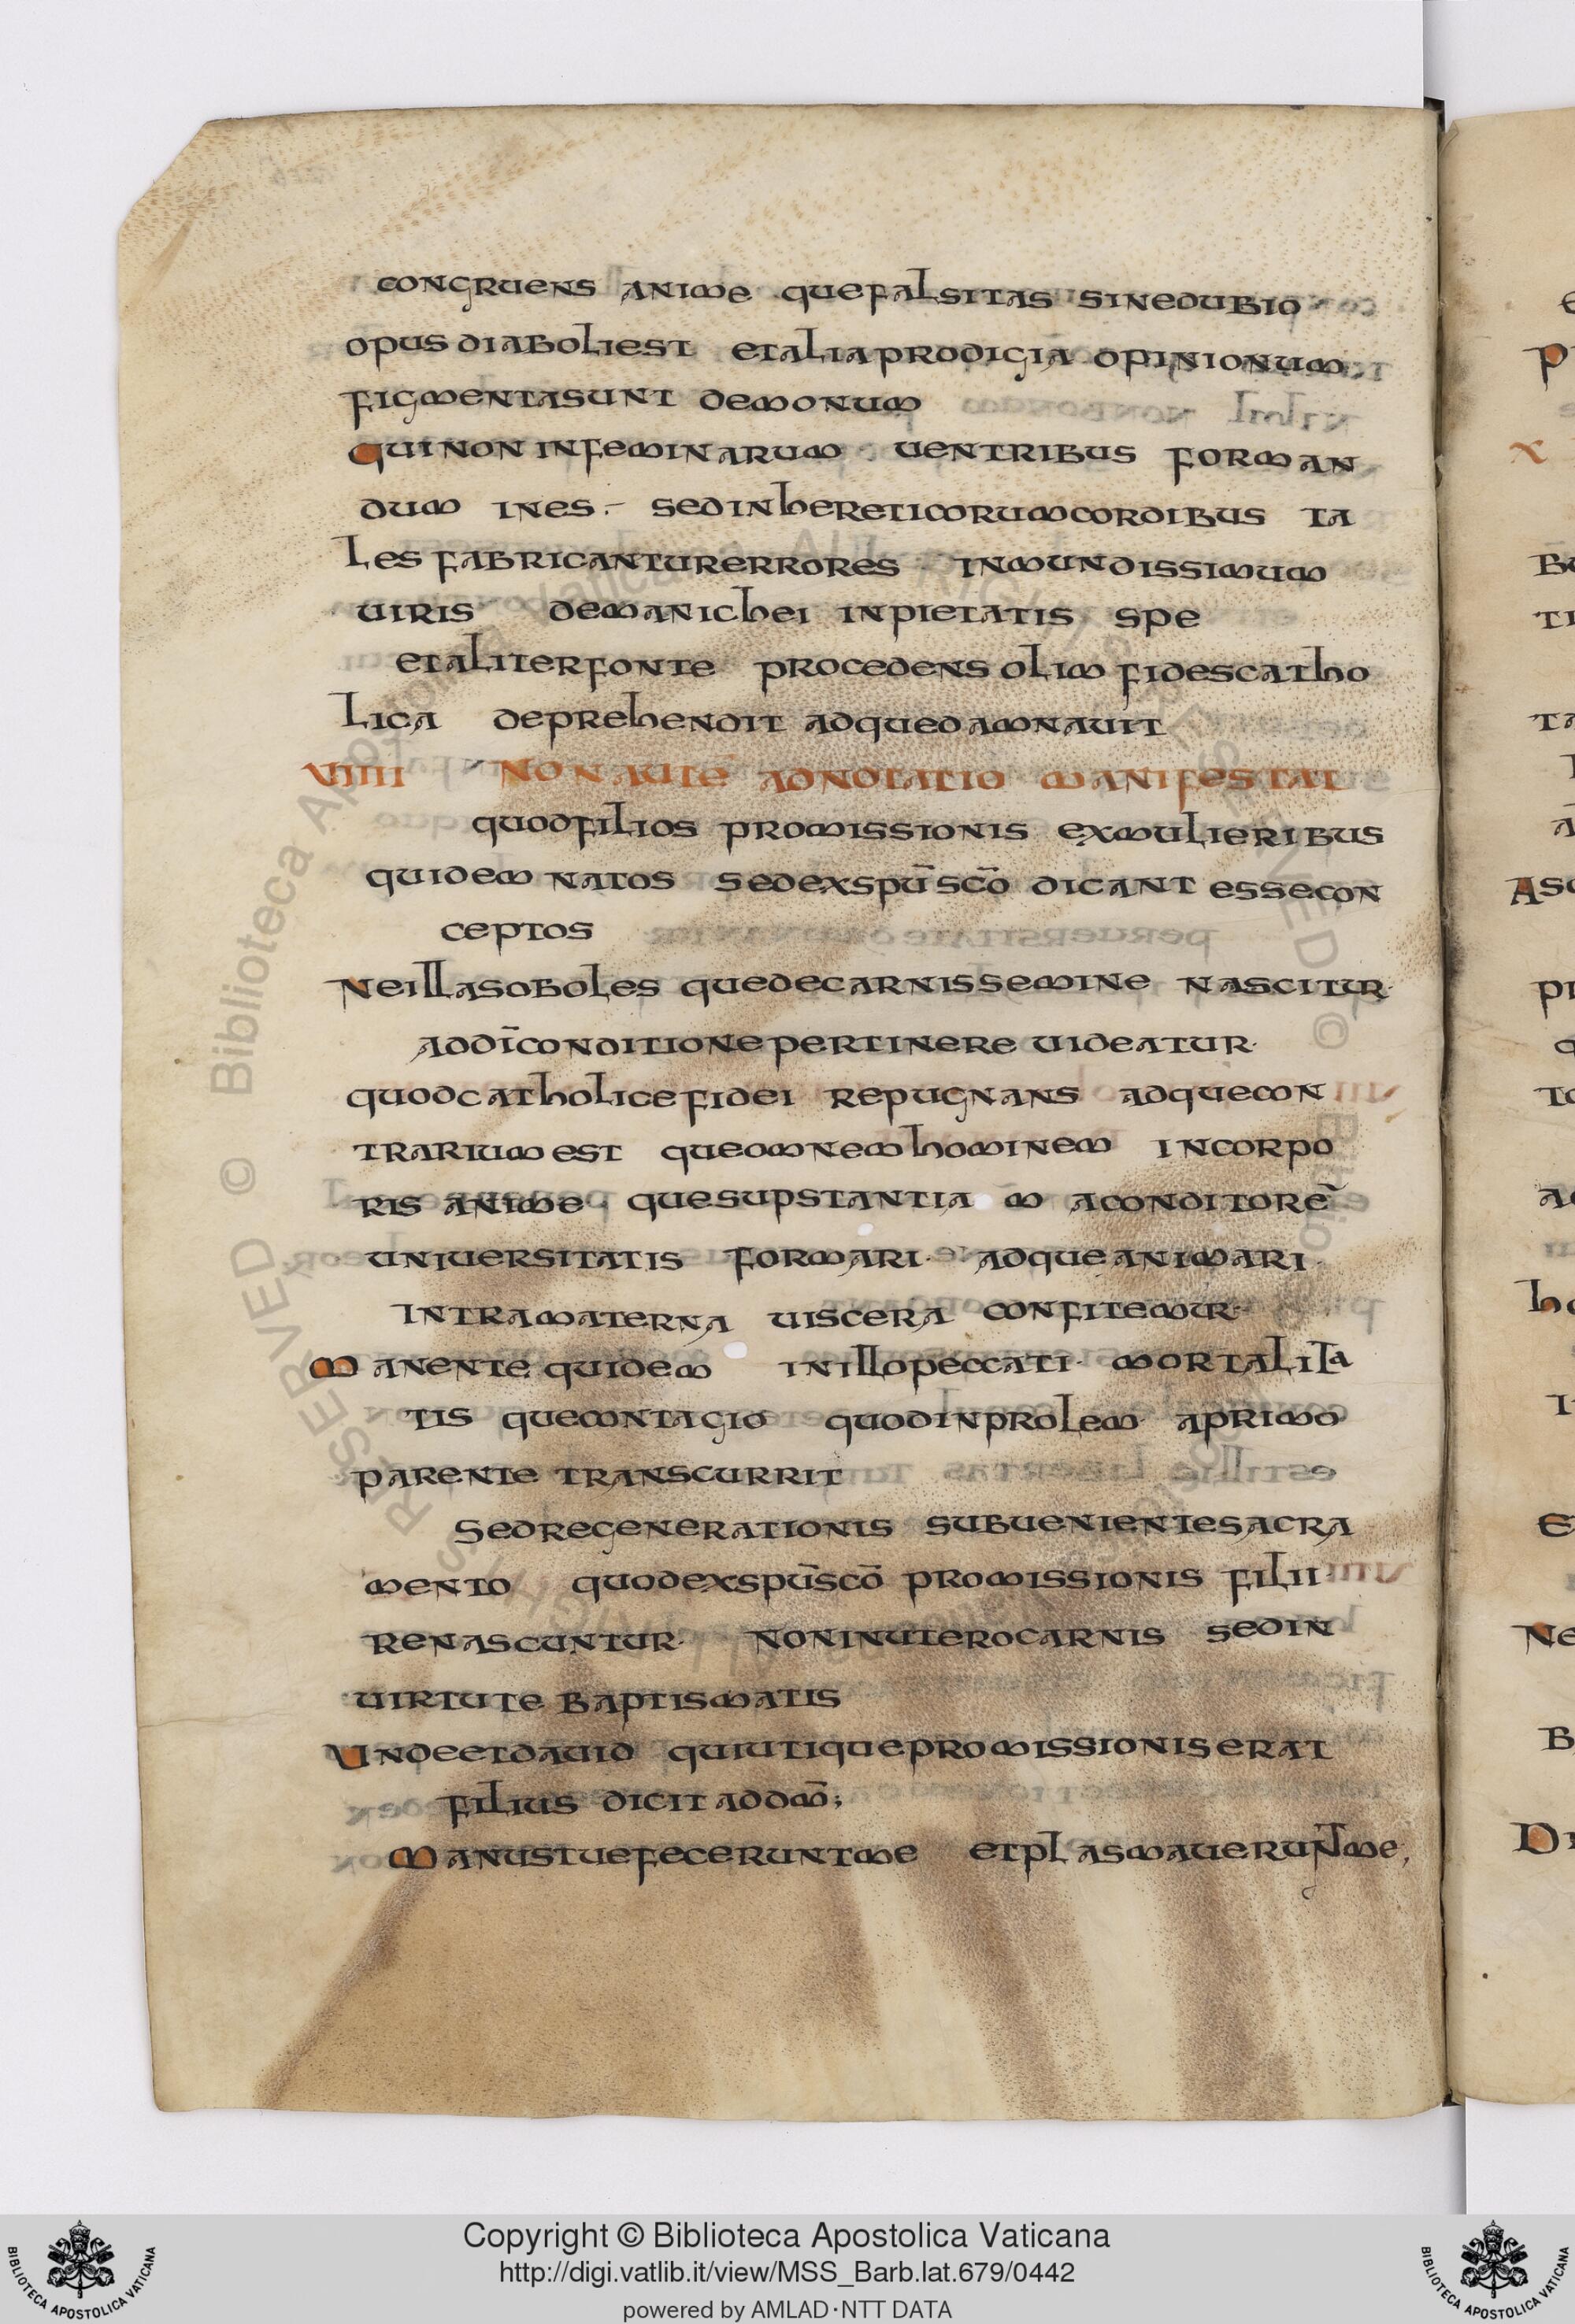 congruens anime quefalsitas sinedubio
opusdiaboliest etaliaprodigia opinionum
figmentasunt demonum
quinon infeminarum uentribus forman
dum ines sedinhereticorumcordibus ta
lesfabricanturerrores inmundissimum
uiris demanichei inpietatis spe
etaliterfonte procedens olim fidescatho
lica deprehendit adquedamnauit
VIIII Non aute adnotatio manifestat
quodfilios promissionis exmulieribus
quidem natos sedexspūscō dicant essecon
ceptos
Neillasoboles quedecarnissemine nascitur
addīconditionepertinere uideatur
quodcatholicefidei repugnans adquecon
trariumest queomnemhominem incorpo
ris anime quesupstantia m aconditorē
uniuersitatis formari adqueanimari
intramaterna uiscera confitemur
Manente quidem inillopeccati mortalita
tis quecontagio quodinprolem aprimo
parente transcurrit
Sedregenerationis subuenientesacra
mento quodexspūscō promissionis filii
renascuntur noninuterocarnis sedin
uirtute baptismatis
Undeetdauid quiutiquepromissioniserat
filius dicit addm̄;
Manustuefeceruntme etplasmauerunтme;
Copyright © Biblioteca Apostolica Vaticana
http://digi.vatlib.it/view/MSS_Barb.lat.679/0442
powered by AMLAD·NTT DATA
BIBLIOTECA APOSTOLICA VATICANA
BIBLIOTECA APOSTOLICA VATICANA